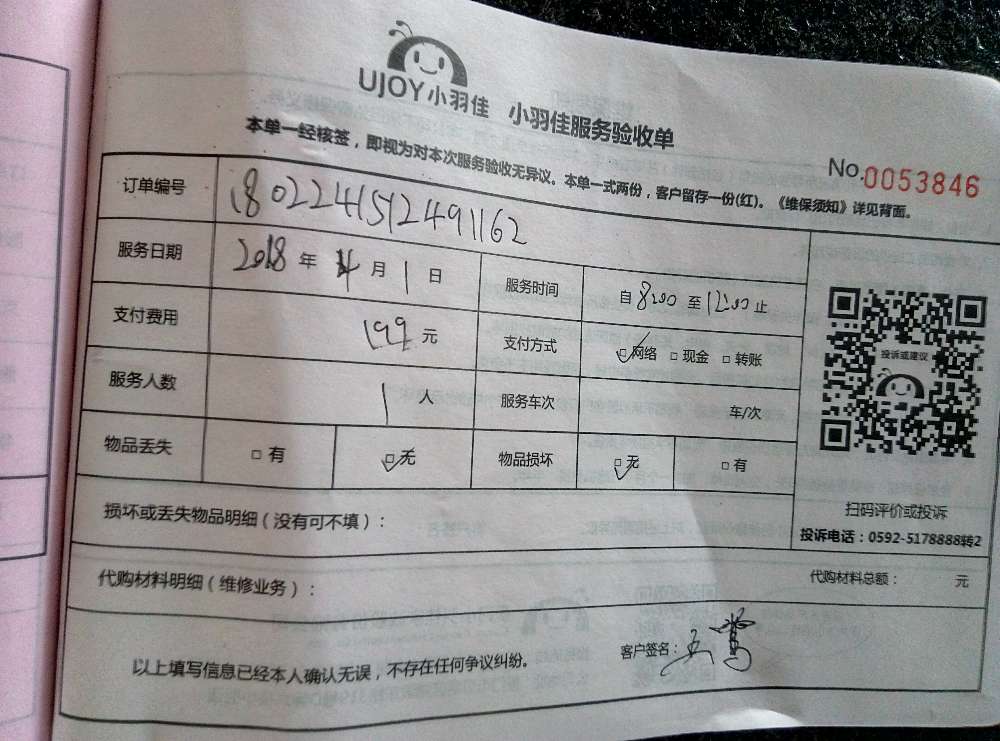 UJOY小羽佳 小羽佳服务验收单
本单一经核签，即视为对本次服务验收无异议。本单一式两份，客户留存一份(红)。《维保须知》详见背面。
No.0053846
订单编号 180224151249162
服务日期 2018年4月1日 服务时间 自8:00至12:00止
支付费用 199元 支付方式 □网络 □现金 □转账
服务人数 1人 服务车次 车/次
物品丢失 □有 □无 物品损坏 □无 □有
投诉或建议
扫码评价或投诉
投诉电话：0592-5178888转2
损坏或丢失物品明细（没有可不填）：
代购材料明细（维修业务）： 代购材料总额： 元
以上填写信息已经本人确认无误，不存在任何争议纠纷。 客户签名：